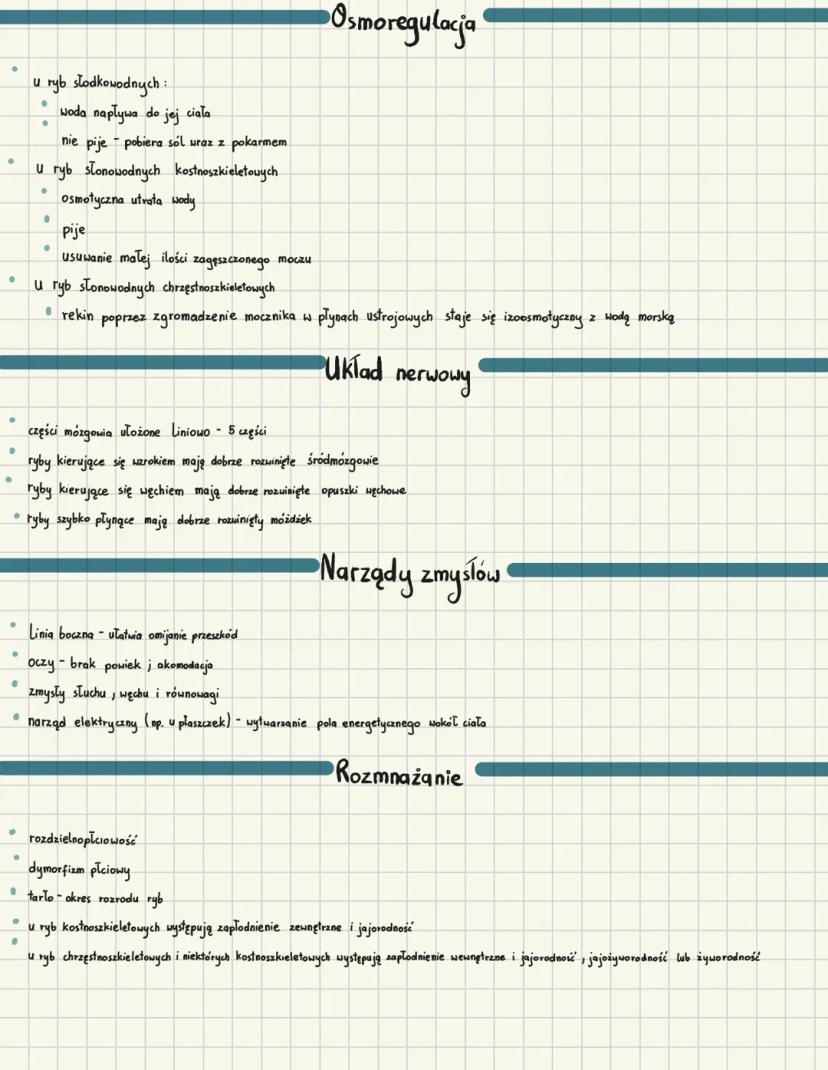 Osmoregulacja
u ryb słodkowodnych :
woda napływa do jej ciała
nie pije - pobiera sól wraz z pokarmem
u ryb słonowodnych kostnoszkieletowych
osmotyczna utrata wody
pije
usuwanie małej ilości zagęszczonego moczu
u ryb słonowodnych chrzęstnoszkieletowych
rekin poprzez zgromadzenie mocznika w płynach ustrojowych staje się izoosmotyczny z wodą morską
Układ nerwowy
części mózgowia ułożone liniowo - 5 części
ryby kierujące się wzrokiem mają dobrze rozwinięte śródmózgowie
ryby kierujące się węchiem mają dobrze rozwinięte opuszki węchowe
ryby szybko płynące mają dobrze rozwinięty móżdżek
Narządy zmysłów
linia boczna - ułatwia omijanie przeszkód
oczy - brak powiek ; akomodacja
zmysły słuchu , węchu i równowagi
narząd elektryczny (np. u płaszczek) - wytwarzanie pola energetycznego wokół ciała
Rozmnażanie
rozdzielnopłciowość
dymorfizm płciowy
tarło - okres rozrodu ryb
u ryb kostnoszkieletowych występują zapłodnienie zewnętrzne i jajorodność
u ryb chrzęstnoszkieletowych i niektórych kostnoszkieletowych występują zapłodnienie wewnętrzne i jajorodność , jajożyworodność lub żyworodność